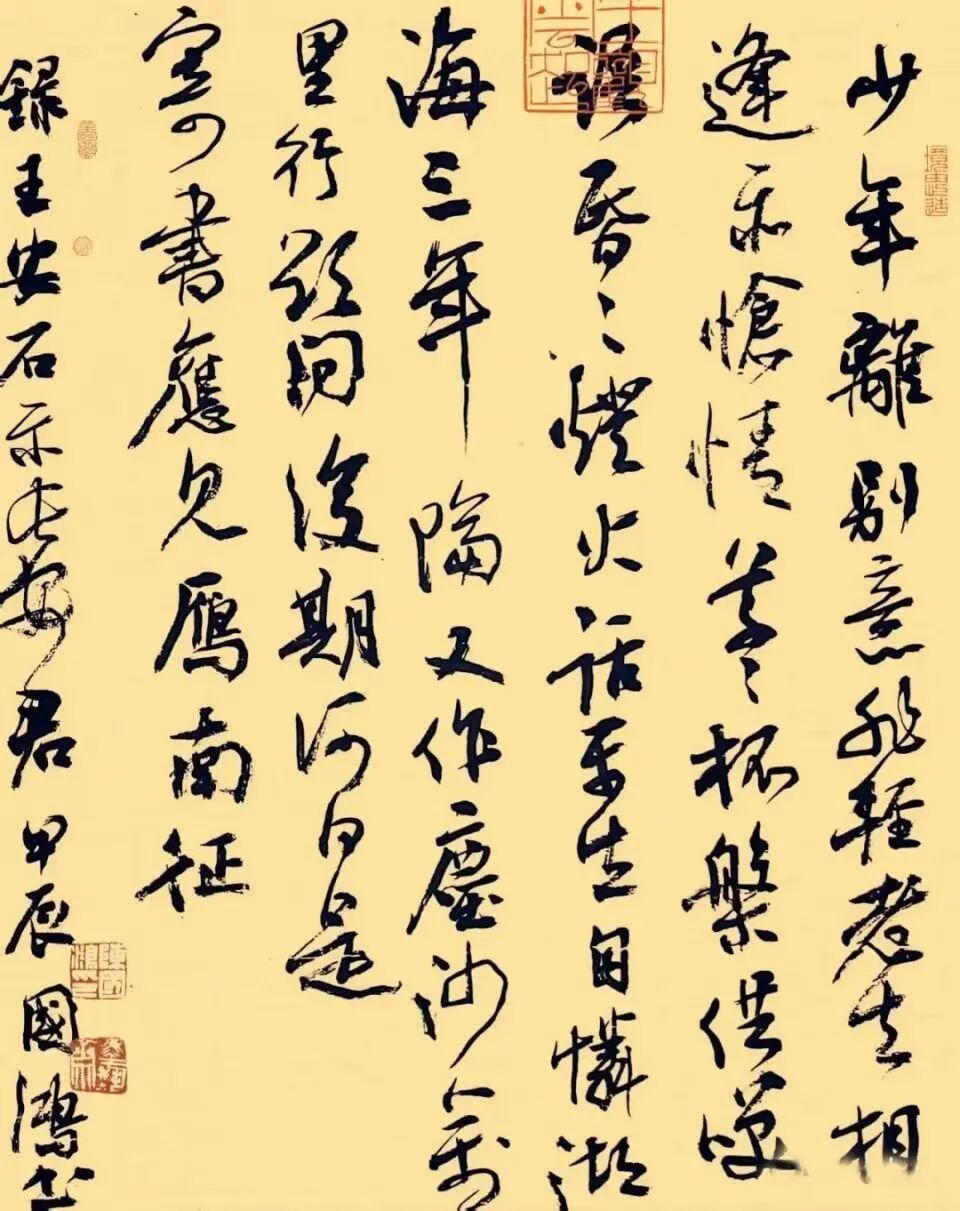 少年離別意非輕老去相
逢亦愴情草々杯盤供咲
語昏々燈火話平生自憐湖
海三年隔又作塵沙萬
里行欲問後期何日是
寄書應見鴈南征
錄王安石示長安君 甲辰 國鴻書